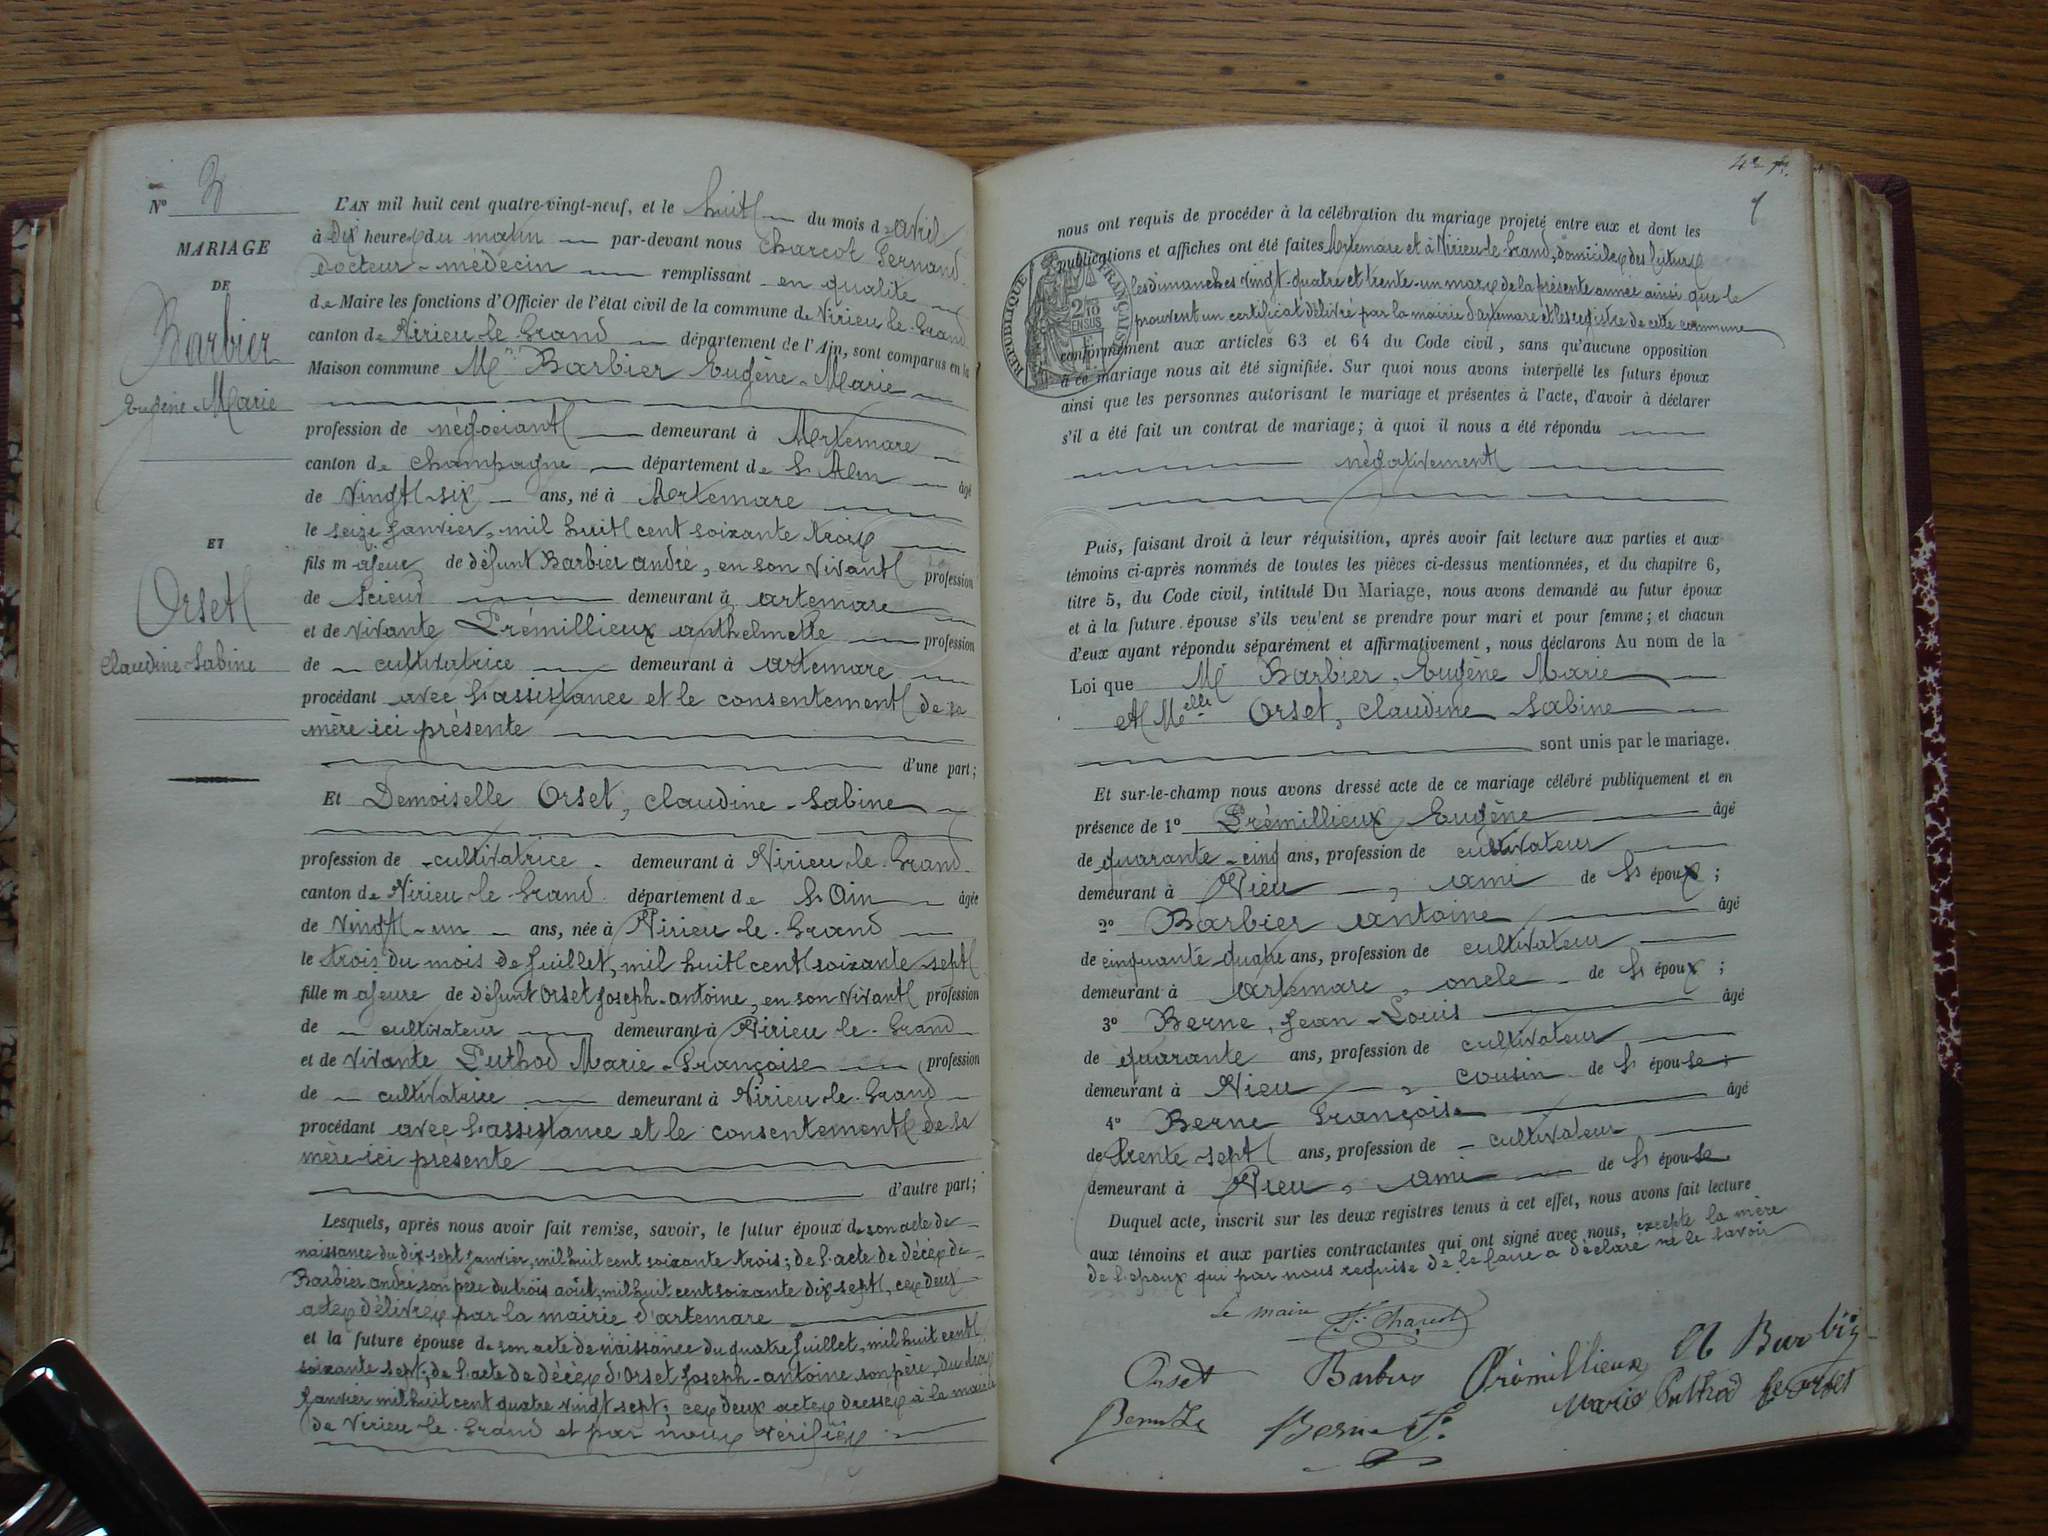 N° 3
MARIAGE
DE
Barbier
Eugène-Marie
ET
Orset
Claudine-Sabine
L'AN mil huit cent quatre-vingt-neuf, et le huit du mois d'avril
à dix heures du matin par-devant nous Charcot Fernand
Docteur-médecin remplissant en qualité
de Maire les fonctions d'Officier de l'état civil de la commune de Virieu-le-Grand
canton de Virieu-le-Grand département de l'Ain, sont comparus en la
Maison commune Mr Barbier Eugène-Marie
profession de négociant demeurant à Artemare
canton de Champagne département de l'Ain âgé
de vingt-six ans, né à Artemare
le seize Janvier, mil huit cent soixante trois
fils majeur de défunt Barbier andré, en son vivant profession
de scieur demeurant à artemare
et de vivante Prémillieux anthelmette profession
de cultivatrice demeurant à artemare
procédant avec l'assistance et le consentement de sa
mère ici présente
d'une part;
Et Demoiselle Orset, Claudine-Sabine
profession de cultivatrice demeurant à Virieu-le-Grand
canton de Virieu-le-Grand département de l'Ain âgée
de vingt-un ans, née à Virieu-le-Grand
le trois du mois de Juillet, mil huit cent soixante-sept
fille majeure de défunt Orset Joseph-antoine, en son vivant profession
de cultivateur demeurant à Virieu-le-Grand
et de vivante Puthod Marie-Françoise profession
de cultivatrice demeurant à Virieu-le-Grand
procédant avec l'assistance et le consentement de sa
mère ici présente
d'autre part;
Lesquels, après nous avoir fait remise, savoir, le futur époux de son acte de
naissance du dix-sept Janvier, mil huit cent soixante trois; de l'acte de décès de
Barbier andré son père du trois août, mil huit cent soixante dix-sept, ces deux
actes délivrés par la mairie d'artemare
et la future épouse de son acte de naissance du quatre Juillet, mil huit cent
soixante sept; de l'acte de décès d'Orset Joseph-antoine son père, du
Janvier mil huit cent quatre vingt sept; ces deux actes dressés à la mairie
de Virieu-le-Grand et par nous vérifiés
4e
nous ont requis de procéder à la célébration du mariage projeté entre eux et dont les
publications et affiches ont été faites Artemare et à Virieu-le-Grand, domiciles des futurs
les dimanches vingt-quatre et trente-un mars de la présente année ainsi que le
prouvent un certificat délivré par la mairie d'artemare et les registre de cette commune
conformément aux articles 63 et 64 du Code civil, sans qu'aucune opposition
à ce mariage nous ait été signifiée. Sur quoi nous avons interpellé les futurs époux
ainsi que les personnes autorisant le mariage et présentes à l'acte, d'avoir à déclarer
s'il a été fait un contrat de mariage; à quoi il nous a été répondu
négativement
RÉPUBLIQUE FRANÇAISE
2/10 EN SUS
Puis, faisant droit à leur réquisition, après avoir fait lecture aux parties et aux
témoins ci-après nommés de toutes les pièces ci-dessus mentionnées, et du chapitre 6,
titre 5, du Code civil, intitulé Du Mariage, nous avons demandé au futur époux
et à la future épouse s'ils veulent se prendre pour mari et pour femme; et chacun
d'eux ayant répondu séparément et affirmativement, nous déclarons Au nom de la
Loi que Mr Barbier, Eugène Marie
et Melle Orset, Claudine Sabine
sont unis par le mariage.
Et sur-le-champ nous avons dressé acte de ce mariage célébré publiquement et en
présence de 1° Prémillieux Eugène âgé
de quarante-cinq ans, profession de cultivateur
demeurant à Vieu, ami de l'époux;
2° Barbier antoine âgé
de cinquante-quatre ans, profession de cultivateur
demeurant à artemare, oncle de l'époux;
3° Berne, Jean-Louis âgé
de quarante ans, profession de cultivateur
demeurant à Vieu, cousin de l'épouse;
4° Berne François âgé
de trente sept ans, profession de cultivateur
demeurant à Vieu, ami de l'épouse.
Duquel acte, inscrit sur les deux registres tenus à cet effet, nous avons fait lecture
aux témoins et aux parties contractantes qui ont signé avec nous, excepté la mère
de l'époux qui par nous requise de le faire a déclaré ne le savoir
Le maire F. Charcot
Orset Barbier Prémillieux A Barbier
Marie Puthod
Berne F.